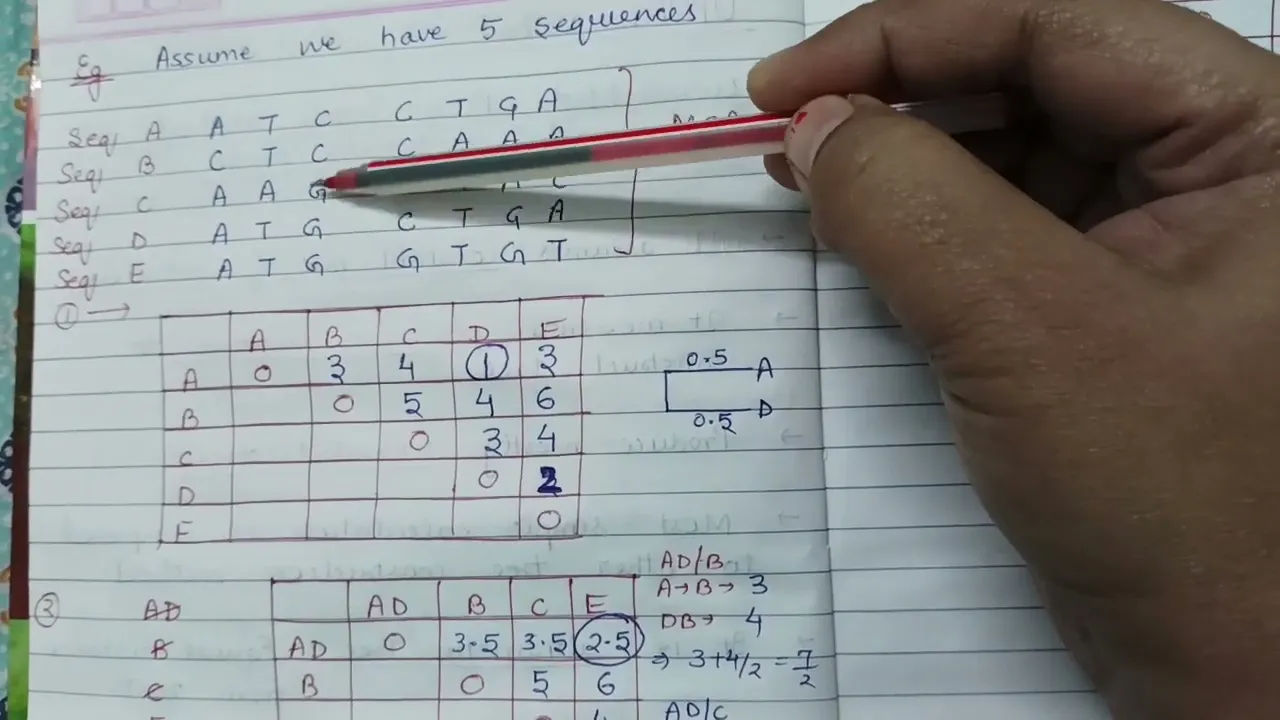 Eg Assume we have 5 sequences
Seq A A T C C T G A
Seq B C T C C A A A
Seq C A A G
Seq D A T G C T G A
Seq E A T G G T G T
① →
A B C D E
A 0 3 4 1 3
B 0 5 4 6
C 0 3 4
D 0 2
E 0
0.5 A
0.5 D
② AD
B
C
AD B C E
AD 0 3.5 3.5 2.5
B 0 5 6
AD/B
A→B→ 3
DB→ 4
⇒ 3+4/2 = 7/2
AD/C